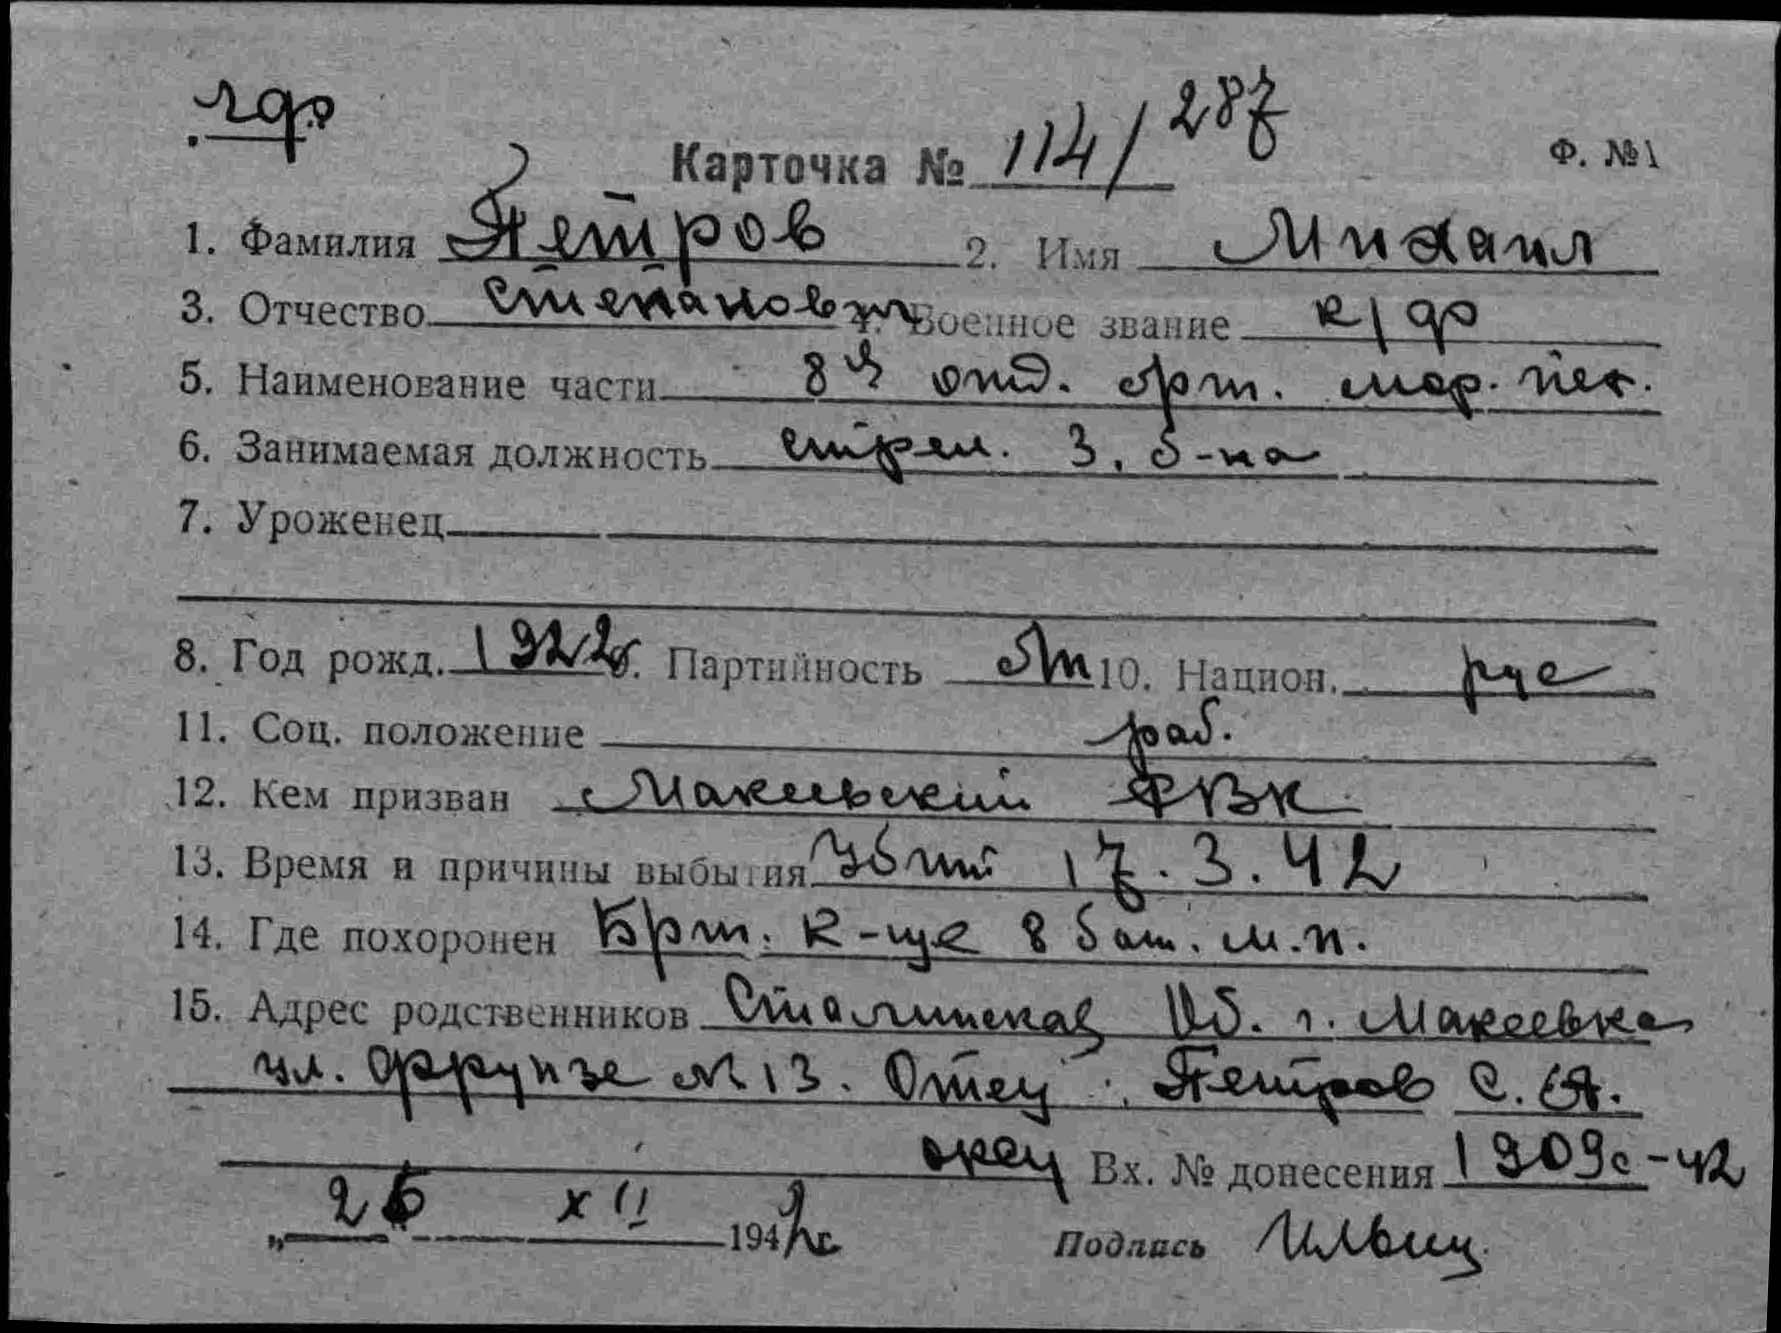 чф
Карточка № 114/287 Ф. №1
1. Фамилия Петров 2. Имя Михаил
3. Отчество Степанович 4. Военное звание к/ф
5. Наименование части 8й отд. брт. мор. пех.
6. Занимаемая должность стрел. 3. б-на
7. Уроженец
8. Год рожд. 1922 Партийность б/п 10. Национ. рус
11. Соц. положение раб.
12. Кем призван Макеевский РВК
13. Время и причины выбытия Убит 17.3.42
14. Где похоронен Брт. к-ще 8 бат. м.п.
15. Адрес родственников Сталинская Об. г. Макеевка
ул. Фрунзе № 13. Отец: Петров С. А.
Вх. № донесения 1909с-42
„26 XII 1942г. Подпись